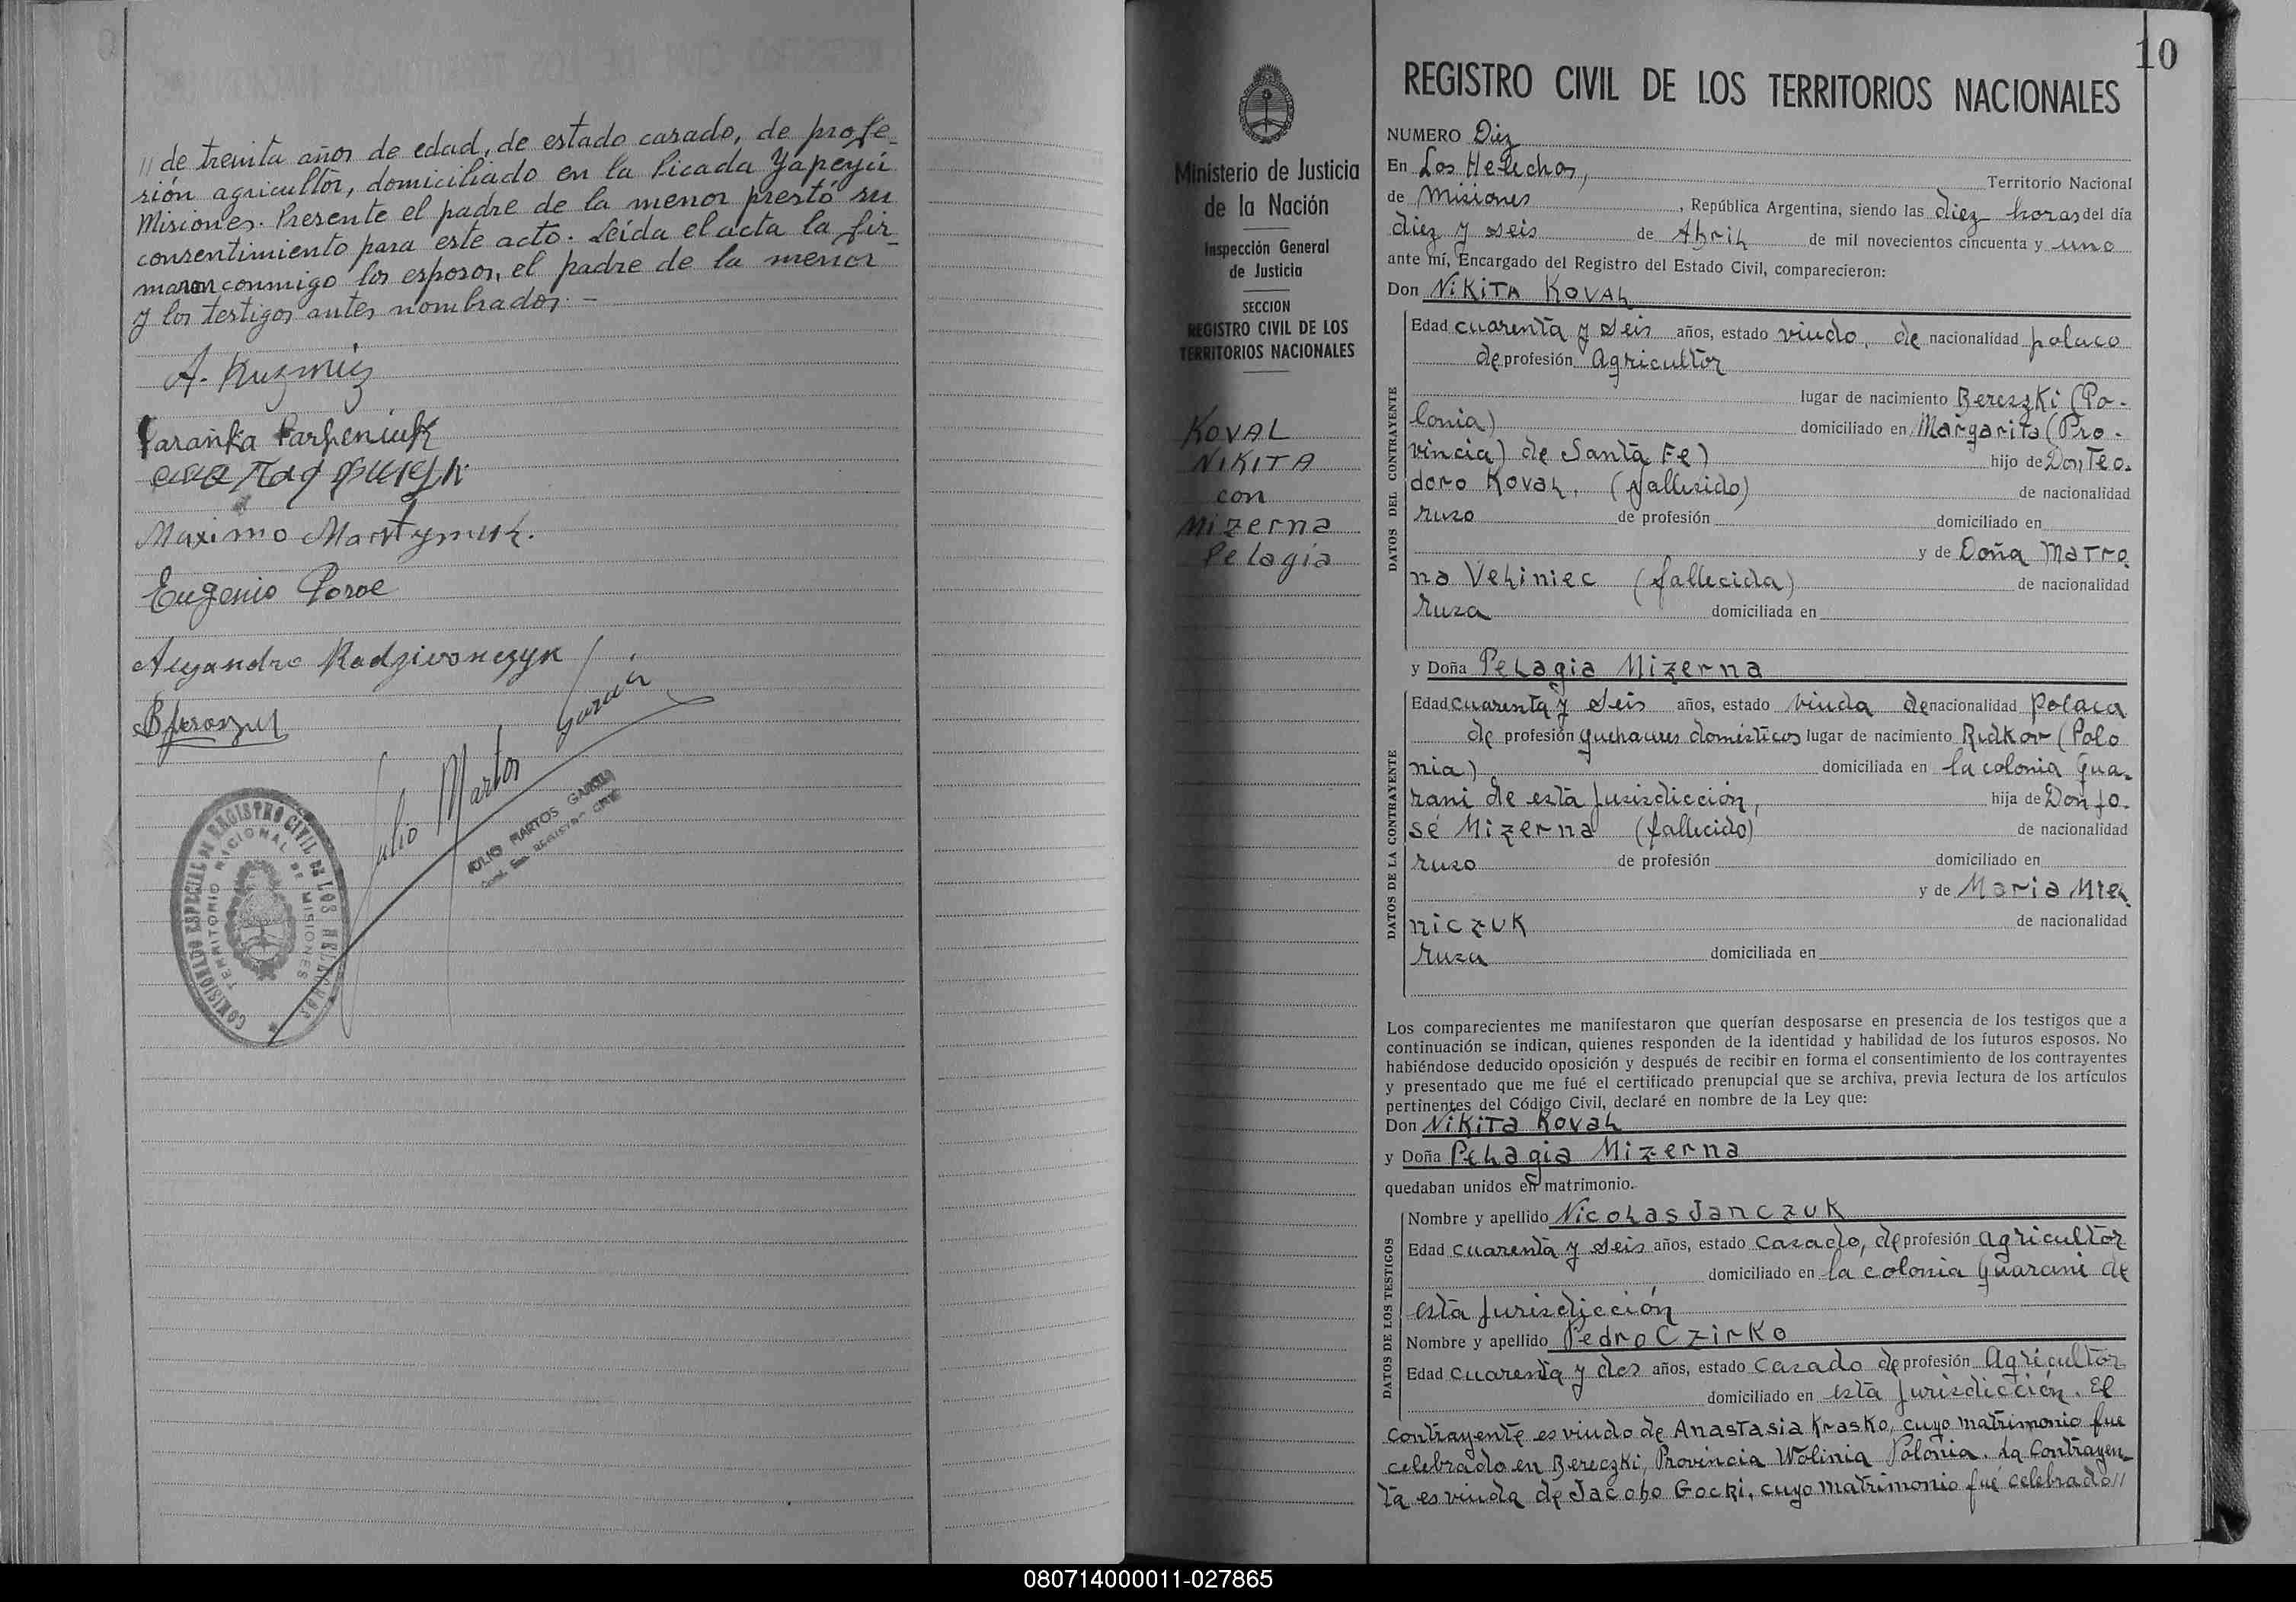 // de treinta años de edad, de estado casado, de profe-
sión agricultor, domiciliado en la Picada Yapeyú
Misiones. Presente el padre de la menor prestó su
consentimiento para este acto. Leída el acta la fir-
maron conmigo los esposos, el padre de la menor
y los testigos antes nombrados. -
A. Kuzmicz
Paranka Parfeniuk
Maximo Martyniuk.
Eugenio
Alejandro Radziwonczyk
Julio Martos Garcia
JULIO MARTOS GARCIA
COMISIONADO ESPECIAL DE REGISTRO CIVIL DE LOS HELECHOS
TERRITORIO NACIONAL DE MISIONES
10
REGISTRO CIVIL DE LOS TERRITORIOS NACIONALES
Ministerio de Justicia
de la Nación
Inspección General
de Justicia
SECCION
REGISTRO CIVIL DE LOS
TERRITORIOS NACIONALES
KOVAL
NIKITA
con
Mizerna
Pelagia
NUMERO Diez
En Los Helechos, Territorio Nacional
de Misiones, República Argentina, siendo las diez horas del día
diez y seis de Abril de mil novecientos cincuenta y uno
ante mí, Encargado del Registro del Estado Civil, comparecieron:
Don NiKiTA KOVAL
DATOS DEL CONTRAYENTE
Edad cuarenta y seis años, estado viudo, de nacionalidad polaco
de profesión Agricultor
lugar de nacimiento Bereszki (Po-
lonia) domiciliado en Margarita (Pro-
vincia) de Santa Fe) hijo de Don Teo-
doro Koval, (fallecido) de nacionalidad
ruso de profesión domiciliado en
y de Doña Matro
na Veliniec (fallecida) de nacionalidad
rusa domiciliada en
y Doña Pelagia Mizerna
DATOS DE LA CONTRAYENTE
Edad cuarenta y seis años, estado viuda de nacionalidad Polaca
de profesión quehaceres domésticos lugar de nacimiento Ridkov (Polo
nia) domiciliada en la colonia Gua-
rani de esta Jurisdicción, hija de Don Jo-
sé Mizerna (fallecido) de nacionalidad
ruso de profesión domiciliado en
y de Maria Miel
niczuk de nacionalidad
rusa domiciliada en
Los comparecientes me manifestaron que querían desposarse en presencia de los testigos que a
continuación se indican, quienes responden de la identidad y habilidad de los futuros esposos. No
habiéndose deducido oposición y después de recibir en forma el consentimiento de los contrayentes
y presentado que me fué el certificado prenupcial que se archiva, previa lectura de los artículos
pertinentes del Código Civil, declaré en nombre de la Ley que:
Don NiKiTa Koval
y Doña Pelagia Mizerna
quedaban unidos en matrimonio.
DATOS DE LOS TESTIGOS
Nombre y apellido Nicolas Janczuk
Edad cuarenta y seis años, estado casado, de profesión agricultor
domiciliado en la colonia Guarani de
esta Jurisdicción
Nombre y apellido Pedro Czirko
Edad cuarenta y dos años, estado casado de profesión Agricultor
domiciliado en esta Jurisdicción. El
contrayente es viudo de Anastasia Krasko, cuyo matrimonio fue
celebrado en Bereczki, Provincia Wolinia Polonia. La Contrayen-
ta es viuda de Jacobo Gocki, cuyo matrimonio fué celebrado//
080714000011-027865